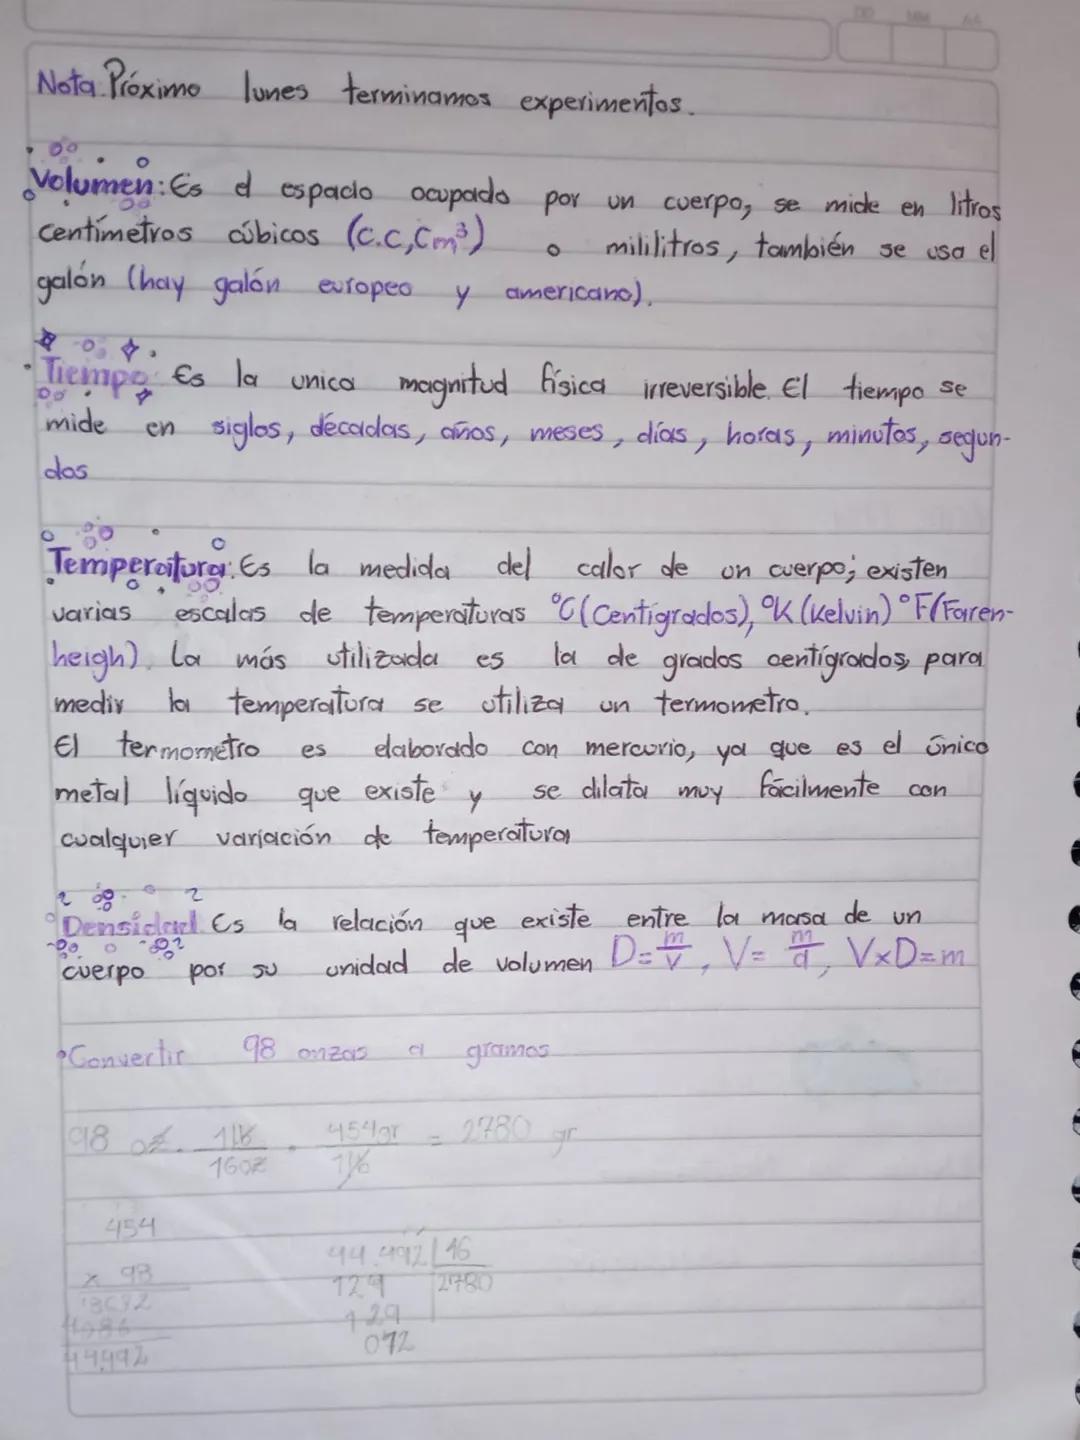 DD MM AA
Nota. Próximo lunes terminamos experimentos.
Volumen: Es el espacio ocupado por un cuerpo, se mide en litros
centímetros cúbicos (C.C, Cm³) o mililitros, también se usa el
galón (hay galón europeo y americano).
Tiempo Es la unica magnitud física irreversible. El tiempo se
mide en siglos, décadas, años, meses, días, horas, minutos, segun-
dos
Temperatura: Es la medida del calor de un cuerpo; existen
varias escalas de temperaturas °C (Centígrados), °K (Kelvin) °F (Faren-
heigh). La más utilizada es la de grados centígrados, para
medir la temperatura se utiliza un termometro.
El termometro es elaborado con mercurio, ya que es el único
metal líquido que existe y se dilata muy fácilmente con
cualquier variación de temperatura
Densidad Es la relación que existe entre la masa de un
cuerpo por su unidad de volumen D=m/v, V=m/d, VxD=m
Convertir 98 onzas a gramos
98 oz. 1lb/16oz . 454gr/1lb = 2780 gr
454
x 98
44.492 | 16
129 2780
129
012
44.492